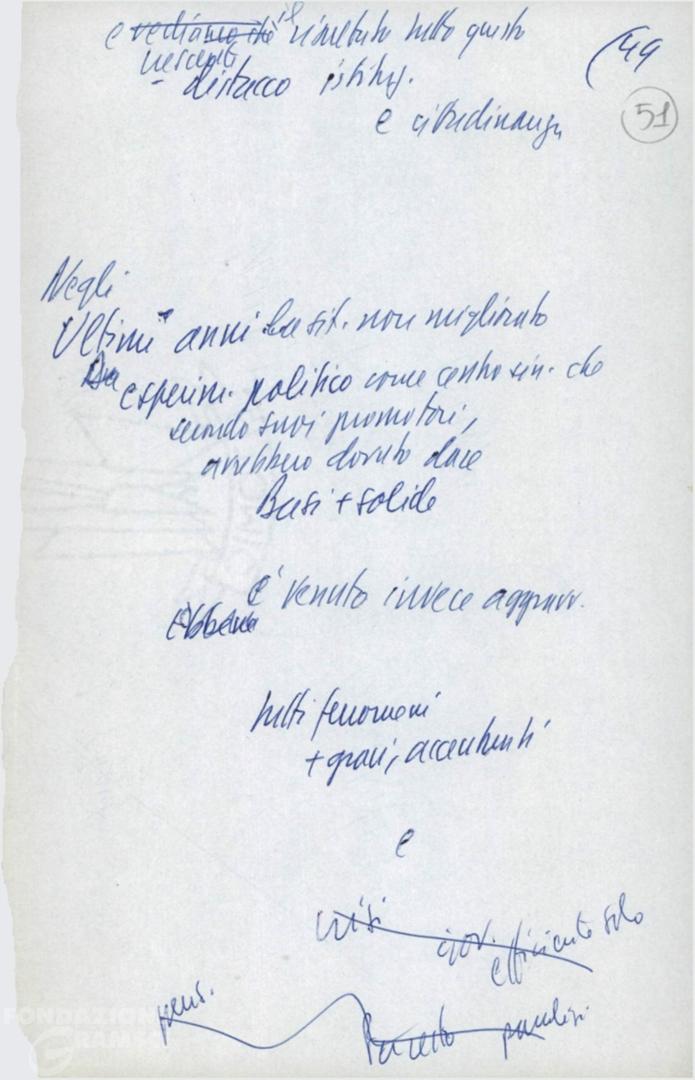 e vediamo che il risultato tutto questo
(49
distacco istituz.
51
e cittadinanza
Negli
Ultimi anni la sit. non migliorato
esperim. politico come centro sin. che
secondo suoi promotori,
avrebbero dovuto dare
Basi + solide
è venuto invece aggrav.
Ebbene
tutti fenomeni
+ gravi, accentuati
e
crisi
gov. efficiente solo
pens.
paralisi
FONDAZIONE
GRAMSCI